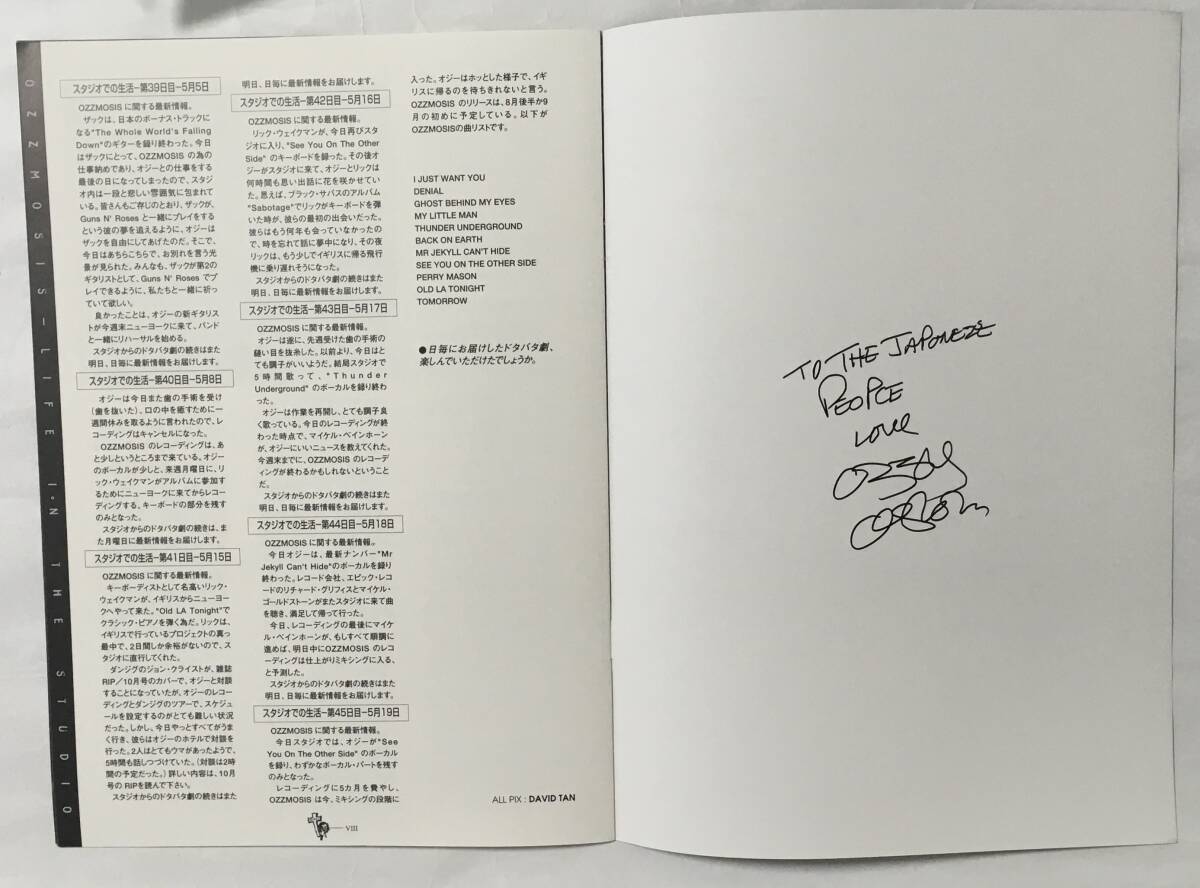 OZZMOSIS-LIFE IN THE STUDIO
スタジオでの生活−第39日目−5月5日
OZZMOSISに関する最新情報。
ザックは、日本のボーナス・トラックに
なる"The Whole World's Falling
Down"のギターを録り終わった。今日
はザックにとって、OZZMOSISの為の
仕事納めであり、オジーとの仕事をする
最後の日になってしまったので、スタジ
オ内は一段と悲しい雰囲気に包まれて
いる。皆さんもご存じのとおり、ザックが、
Guns N' Rosesと一緒にプレイをする
という彼の夢を追えるように、オジーは
ザックを自由にしてあげたのだ。そこで、
今日はあちらこちらで、お別れを言う光
景が見られた。みんなも、ザックが第2の
ギタリストとして、Guns N' Rosesでプ
レイできるように、私たちと一緒に祈っ
ていて欲しい。
良かったことは、オジーの新ギタリス
トが今週末ニューヨークに来て、バンド
と一緒にリハーサルを始める。
スタジオからのドタバタ劇の続きはまた
明日、日毎に最新情報をお届けします。
スタジオでの生活−第40日目−5月8日
オジーは今日また歯の手術を受け
(歯を抜いた)、口の中を癒すために一
週間休みを取るように言われたので、レ
コーディングはキャンセルになった。
OZZMOSISのレコーディングは、あ
と少しというところまで来ている。オジー
のボーカルが少しと、来週月曜日に、リ
ック・ウェイクマンがアルバムに参加す
るためにニューヨークに来てからレコー
ディングする、キーボードの部分を残す
のみとなった。
スタジオからのドタバタ劇の続きは、ま
た月曜日に最新情報をお届けします。
スタジオでの生活−第41日目−5月15日
OZZMOSISに関する最新情報。
キーボーディストとして名高いリック・
ウェイクマンが、イギリスからニューヨー
クへやって来た。"Old LA Tonight"で
クラシック・ピアノを弾く為だ。リックは、
イギリスで行っているプロジェクトの真っ
最中で、2日間しか余裕がないので、ス
タジオに直行してくれた。
ダンジグのジョン・クライストが、雑誌
RIP/10月号のカバーで、オジーと対談
することになっていたが、オジーのレコー
ディングとダンジグのツアーで、スケジュ
ールを設定するのがとても難しい状況
だった。しかし、今日やっとすべてがうま
く行き、彼らはオジーのホテルで対談を
行った。2人はとてもウマがあったようで、
5時間も話しつづけていた。(対談は2時
間の予定だった。)詳しい内容は、10月
号のRIPを読んで下さい。
スタジオからのドタバタ劇の続きはまた
明日、日毎に最新情報をお届けします。
スタジオでの生活−第42日目−5月16日
OZZMOSISに関する最新情報。
リック・ウェイクマンが、今日再びスタ
ジオに入り、"See You On The Other
Side" のキーボードを録った。その後オ
ジーがスタジオに来て、オジーとリックは
何時間も思い出話に花を咲かせてい
た。思えば、ブラック・サバスのアルバム
"Sabotage"でリックがキーボードを弾
いた時が、彼らの最初の出会いだった。
彼らはもう何年も会っていなかったの
で、時を忘れて話に夢中になり、その夜
リックは、もう少しでイギリスに帰る飛行
機に乗り遅れそうになった。
スタジオからのドタバタ劇の続きはまた
明日、日毎に最新情報をお届けします。
スタジオでの生活−第43日目−5月17日
OZZMOSISに関する最新情報。
オジーは遂に、先週受けた歯の手術の
縫い目を抜糸した。以前より、今日はと
ても調子がいいようだ。結局スタジオで
5時間歌って、"Thunder
Underground" のボーカルを録り終わ
った。
オジーは作業を再開し、とても調子良
く歌っている。今日のレコーディングが終
わった時点で、マイケル・ベインホーン
が、オジーにいいニュースを教えてくれた。
今週末までに、OZZMOSISのレコーデ
ィングが終わるかもしれないということ
だ。
スタジオからのドタバタ劇の続きはまた
明日、日毎に最新情報をお届けします。
スタジオでの生活−第44日目−5月18日
OZZMOSISに関する最新情報。
今日オジーは、最新ナンバー"Mr
Jekyll Can't Hide"のボーカルを録り
終わった。レコード会社、エピック・レコ
ードのリチャード・グリフィスとマイケル・
ゴールドストーンがまたスタジオに来て曲
を聴き、満足して帰って行った。
今日、レコーディングの最後にマイケ
ル・ベインホーンが、もしすべて順調に
進めば、明日中にOZZMOSISのレコ
ーディングは仕上がりミキシングに入る、
と予測した。
スタジオからのドタバタ劇の続きはまた
明日、日毎に最新情報をお届けします。
スタジオでの生活−第45日目−5月19日
OZZMOSISに関する最新情報。
今日スタジオでは、オジーが"See
You On The Other Side" のボーカル
を録り、わずかなボーカル・パートを残す
のみとなった。
レコーディングに5カ月を費やし、
OZZMOSISは今、ミキシングの段階に
入った。オジーはホッとした様子で、イギ
リスに帰るのを待ちきれないと言う。
OZZMOSISのリリースは、8月後半か9
月の初めに予定している。以下が
OZZMOSISの曲リストです。
I JUST WANT YOU
DENIAL
GHOST BEHIND MY EYES
MY LITTLE MAN
THUNDER UNDERGROUND
BACK ON EARTH
MR JEKYLL CAN'T HIDE
SEE YOU ON THE OTHER SIDE
PERRY MASON
OLD LA TONIGHT
TOMORROW
●日毎にお届けしたドタバタ劇、
楽しんでいただけたでしょうか。
ALL PIX : DAVID TAN
VIII
TO THE JAPONEZE
PEOPLE
LOVE
OZZY